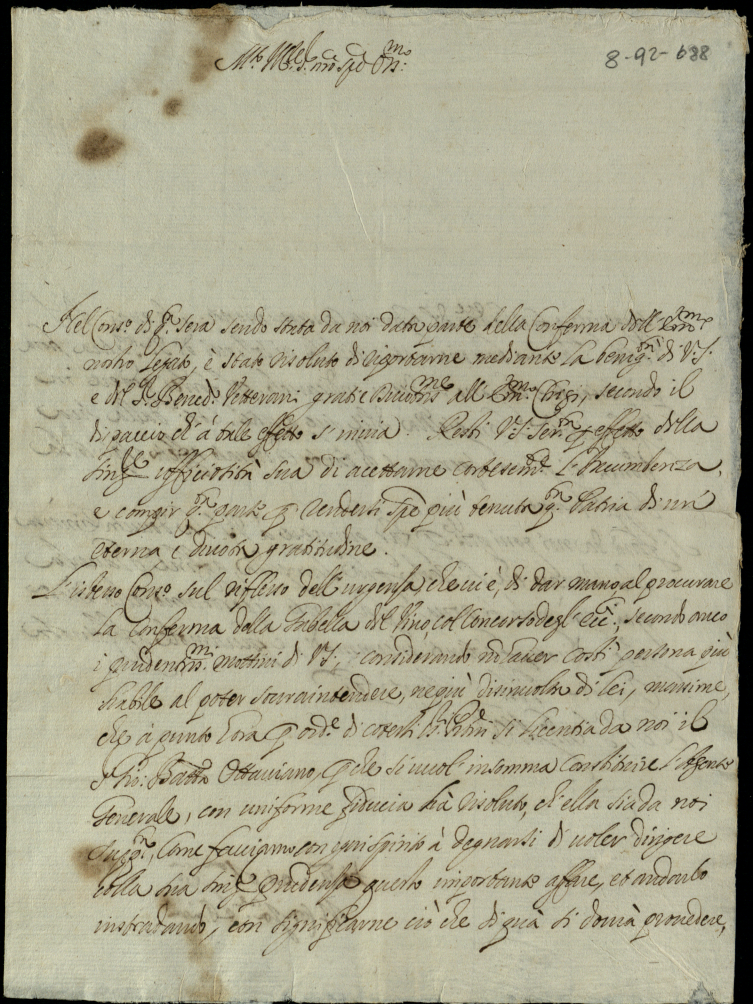 8-92-688
Mto Mco Sr nro Spe Ono:
Nel Conso di qta sera sendo stata da noi data parte della Conferma dell' Emmo
nostro Legato, è stato risoluto di riportarne mediante la benigtà di V.S.
e del Sr Bened: Vetterani gratie all' Emo Chigi, secondo il
dispaccio ch' à tale effetto s' invia. Resti V.S. servta p effetto della
singre officiosità sua di accettarne cortesemte l' Incumbenza,
e compir parte p renderci spe più tenuta qta Patria di un'
eterna e divota gratitudine.
L'istesso Conso sul riflesso dell' urgenza, che vi è, di dar mano al procurare
la Conferma della Tabella del Vino, col Concorso degl' Ecci, secondo anco
i prudenmi mottivi di V.S., considerando non aver costì persona più
stabile al poter sovraintendere, ne più disinvolta di lei, massime,
che à punto hora p orde di cotesti Sri si licentia da noi il
Sr Gio: Batta Ottaviano, p che si vuol insomma constituire l'Agente
Generale, con uniforme fiducia hà risoluto, ch' ella sia da noi
come facciamo con pari spirito à degnarsi di voler dirigere
colla sua singre prudenza questo importante affare, et andarlo
instradando, con significarne ciò che di quà si dovrà provedere,